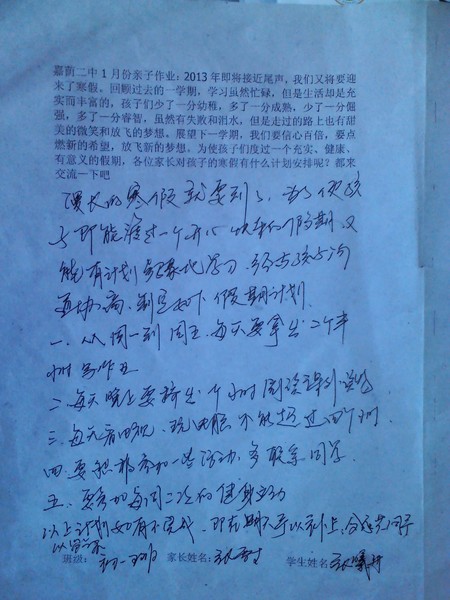 嘉荫二中1月份亲子作业：2013年即将接近尾声，我们又将要迎
来了寒假。回顾过去的一学期，学习虽然忙碌，但是生活却是充
实而丰富的，孩子们少了一分幼稚，多了一分成熟，少了一分倔
强，多了一分睿智，虽然有失败和泪水，但是走过的路上也有甜
美的微笑和放飞的梦想。展望下一学期，我们要信心百倍，要点
燃新的希望，放飞新的梦想。为使孩子们度过一个充实、健康、
有意义的假期，各位家长对孩子的寒假有什么计划安排呢？都来
交流一下吧
漫长的寒假就要到了，为了使孩
子即能渡过一个开心快乐的假期，又
能有计划地学习，经与孩子沟
通协商，制定如下假期计划
一、从周一到周五，每天要拿出二个半
小时写作业
二、每天晚上要挤出一个小时阅读课外
三、每天看电视、玩电脑不能超过四个小时
四、要积极参和一些活动，多联系同学
五、要参加每周二次的健身运动
以上计划如有不完成，即在
班级：初一 班 家长姓名： 学生姓名：